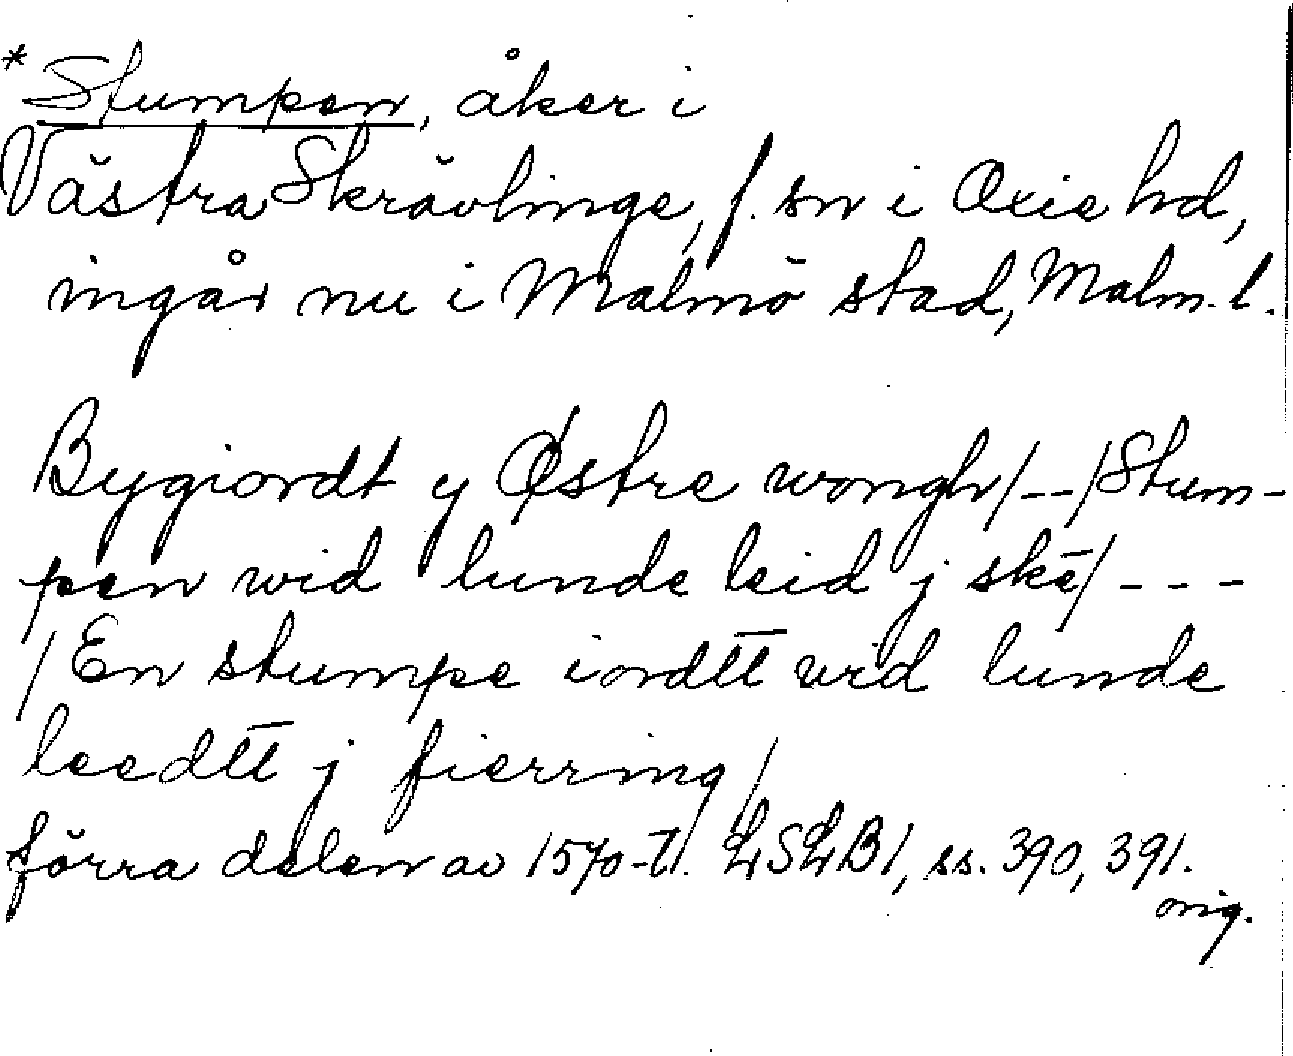 *Stumpen, åker i
Västra Skrävlinge, f. sn i Oxie hd,
ingår nu i Malmö stad, Malm. l.
Bygiordt y Østre wongh/--/Stum-
pen wid lunde leid j skē/---
/En stumpe iordtt vid lunde
leedtt j fierring/
förra delen av 1570-t. LSLB1, ss. 390, 391.
orig.